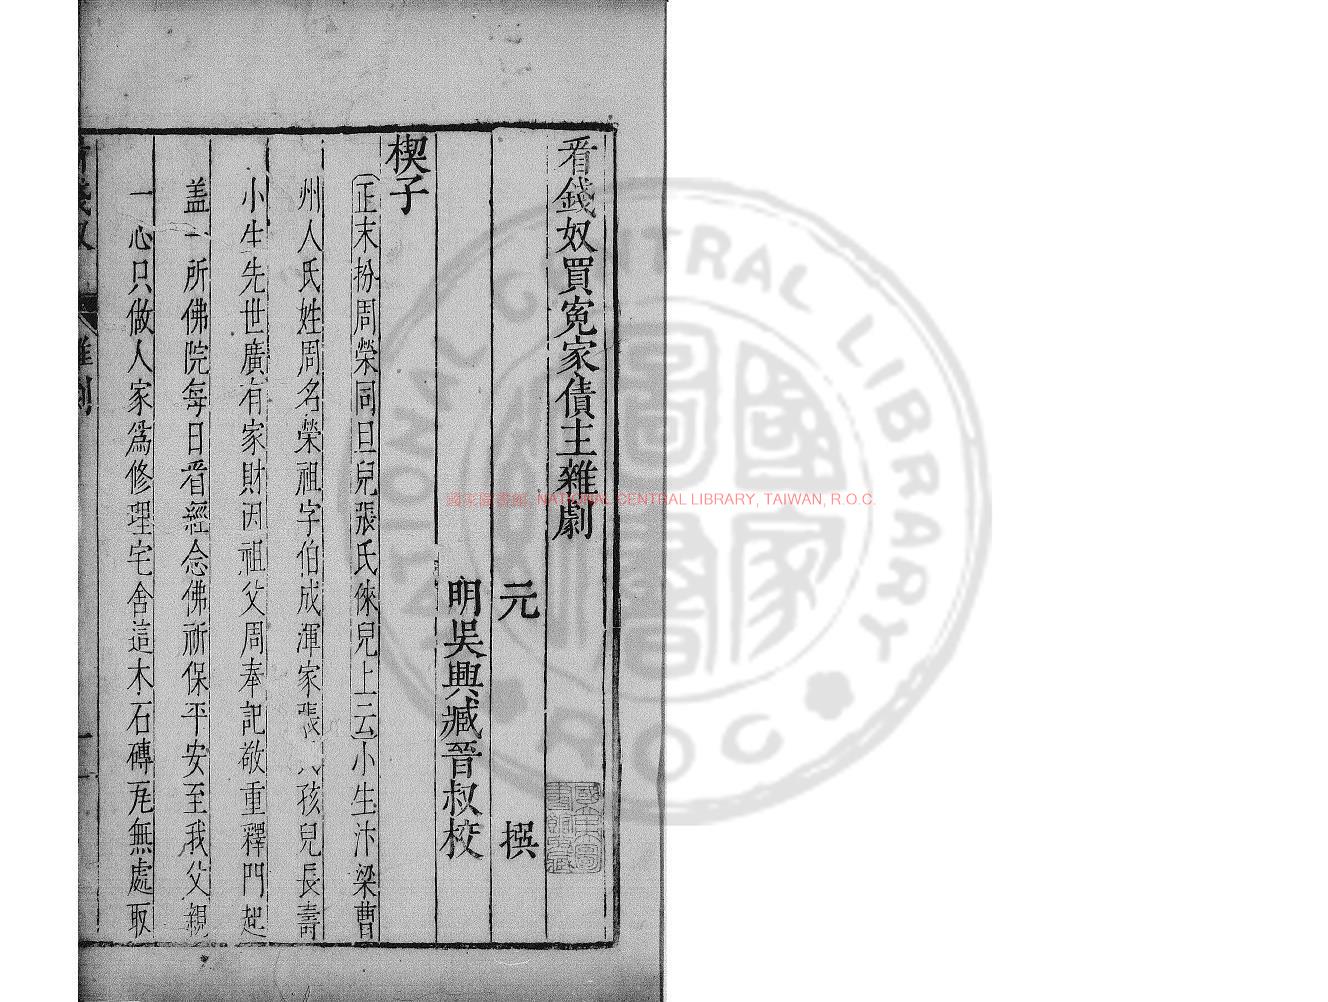 看錢奴買冤家債主雜劇
元 撰
明吳興臧晉叔校
楔子
正末扮周榮同旦兒張氏倈兒上云小生汴梁曹
州人氏姓周名榮祖字伯成渾家張 孩兒長壽
小生先世廣有家財因祖父周奉記敬重釋門起
盖一所佛院每日看經念佛祈保平安至我父親
一心只做人家爲修理宅舍這木石磚瓦無處取
國家圖書館, NATIONAL CENTRAL LIBRARY, TAIWAN, R.O.C.
NATIONAL CENTRAL LIBRARY
R O C
國家圖書